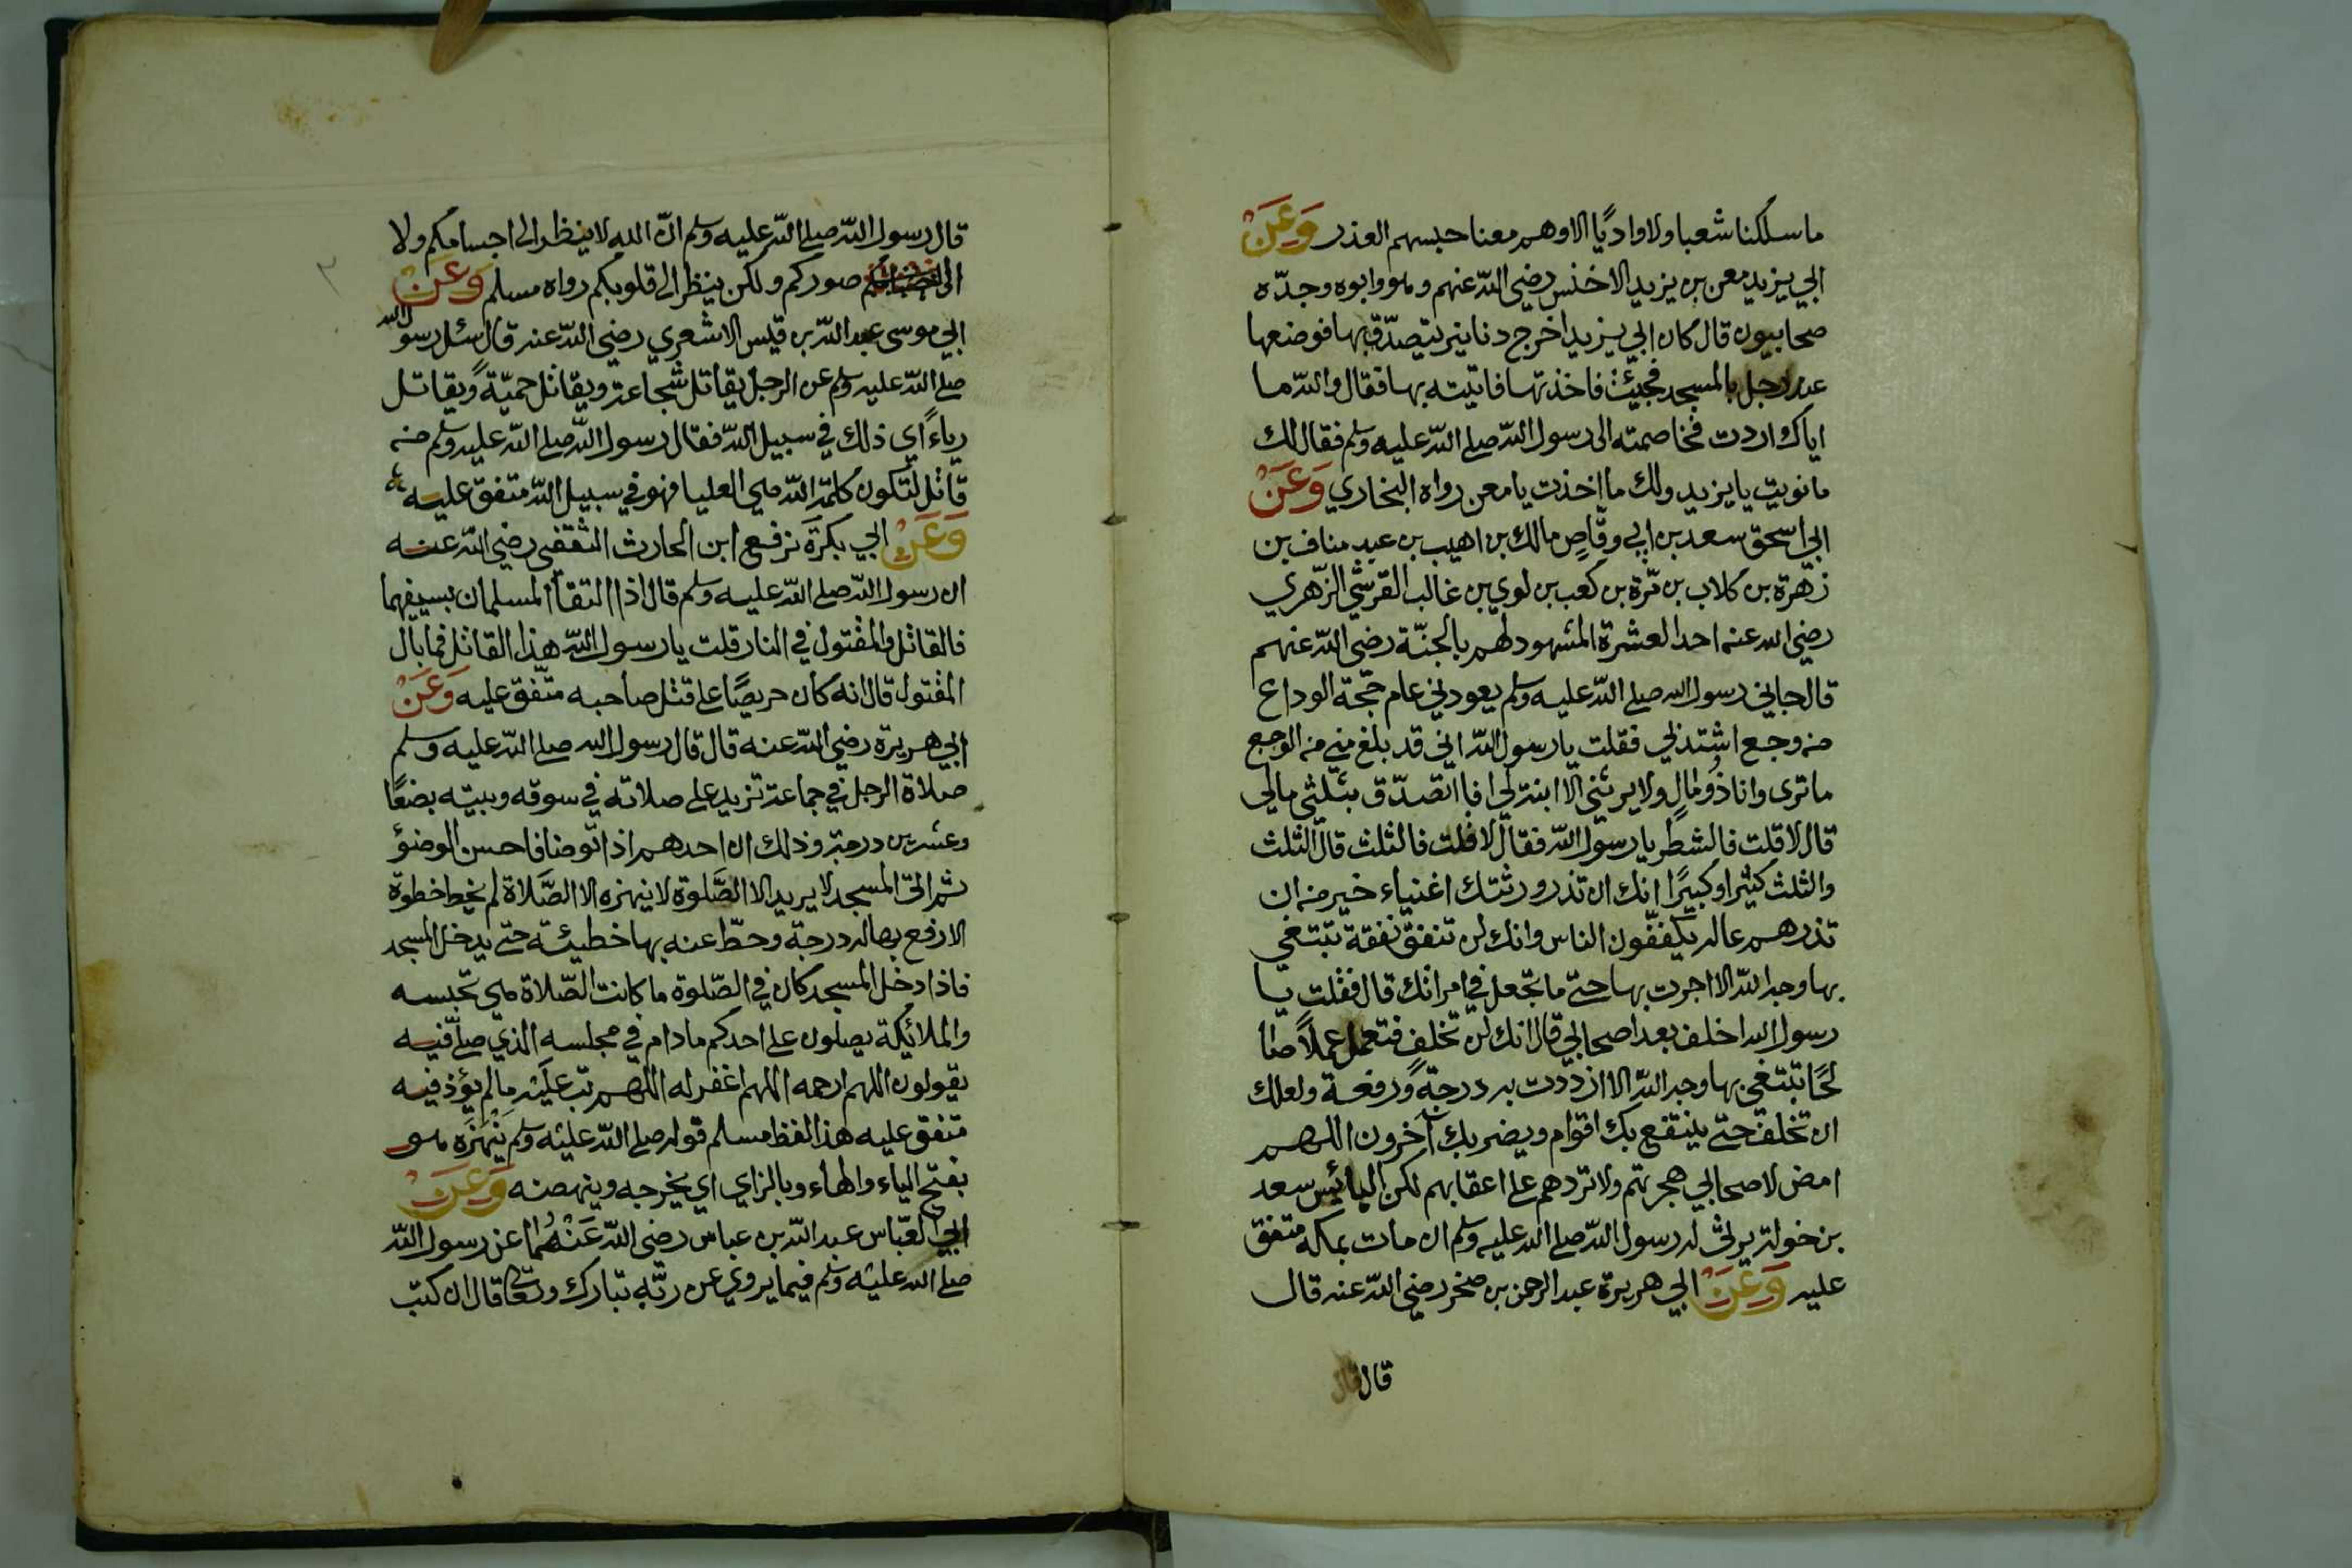 ما سلكنا شعبا ولا واديًا الا وهم معنا حبسهم العذر وَعَنْ
ابي يزيد معن بن يزيد الاخنس رضي الله عنهم وهو وابوه وجدّه
صحابيون قال كان ابي يزيد اخرج دنانير يتصدّق بها فوضعها
عند رجل بالمسجد فجئت فاخذتها فاتيته بها فقال والله ما
اياك اردت فخاصمته الى رسول الله صلى الله عليه وسلم فقال لك
ما نويت يا يزيد ولك ما اخذت يا معن رواه البخاري وَعَنْ
ابي اسحق سعد بن ابي وقّاصٍ مالك بن اهيب بن عبد مناف بن
زهرة بن كلاب بن مرّة بن كعب بن لوي بن غالب القرشي الزّهري
رضي الله عنه احد العشرة المشهود لهم بالجنّة رضي الله عنهم
قال جاني رسول الله صلى الله عليه وسلم يعودني عام حجّة الوداع
من وجع اشتد لي فقلت يا رسول الله اني قد بلغ مني من الوجع
ما ترى وانا ذُو مالٍ ولا يرثني الا ابنة لي افا اتصدّق بثلثي مالي
قال لا قلت فالشطر يا رسول الله فقال لا قلت فالثلث قال الثلث
والثلث كثيرا وكبيرًا انك ان تذر ورثتك اغنياء خير من ان
تذرهم عالة يتكففّون الناس وانك لن تنفق نفقة تبتغي
بها وجه الله الا اجرت بها حتى ما تجعل في امراتك قال فقلت يا
رسول الله اخلف بعد اصحابي قال انك لن تخلف فتعمل عملاً صا
لحًا تبتغي بها وجه الله الا ازددت به درجةً ورفعة ولعلك
ان تخلف حتى ينتفع بك اقوام ويضر بك آخرون اللهم
امض لاصحابي هجرتهم ولا تردهم على اعقابهم لكن البائس سعد
بن خولة يرثي له رسول الله صلى الله عليه وسلم ان مات بمكة متفق
عليه وَعَنْ ابي هريرة عبد الرحمن بن صخر رضي الله عنه قال
قال قال
قال رسول الله صلى الله عليه وسلم ان الله لا ينظر الى اجسامكم ولا
الى صوركم ولكن ينظر الى قلوبكم رواه مسلم وَعَنْ
ابي موسى عبد الله بن قيس الاشعري رضي الله عنه قال سئل رسو
ل الله
صلى الله عليه وسلم عن الرجل يقاتل شجاعة ويقاتل حميّةً ويقاتل
رياءً اي ذلك في سبيل الله فقال رسول الله صلى الله عليه وسلم من
قاتل لتكون كلمة الله هي العليا فهو في سبيل الله متفق عليه
وَعَنْ ابي بكرَةَ نرفيع ابن الحارث الثقفي رضي الله عنه
ان رسول الله صلى الله عليه وسلم قال اذا التقا المسلمان بسيفهما
فالقاتل والمقتول في النار قلت يا رسول الله هذا القاتل فما بال
المقتول قال انه كان حريصًا على قتل صاحبه متّفق عليه وَعَنْ
ابي هريرة رضي الله عنه قال قال رسول الله صلى الله عليه وسلم
صلاة الرجل في جماعة تزيد على صلاته في سوقه وبيته بضعًا
وعشرين درجة وذلك ان احدهم اذا توضا فاحسن الوضوٴ
ثم اتى المسجد لا يريد الا الصَّلوة لا ينهزه الا الصَّلاة لم يخط خطوة
الا رفع بها له درجة وحطّ عنه بها خطيئة حتى يدخل المسجد
فاذا دخل المسجد كان في الصّلوة ما كانت الصّلاة هي تحبسه
والملائكة يصلون على احدكم ما دام في مجلسه الذي صلّى فيه
يقولون اللهم ارحمه اللهم اغفر له اللهم تب عليه ما لم يؤذ فيه
متفق عليه هذا لفظ مسلم قوله صلى الله عليه وسلم يَنْهَزَه هو
بفتح الياء والهاء وبالزاي اي يخرجه وينهضه وَعَنْ
ابي العبّاس عبد الله بن عباس رضي الله عَنْهُما عن رسول الله
صلى الله عليه وسلم فيما يروي عن ربّه تبارك وتعالى قال ان كتب